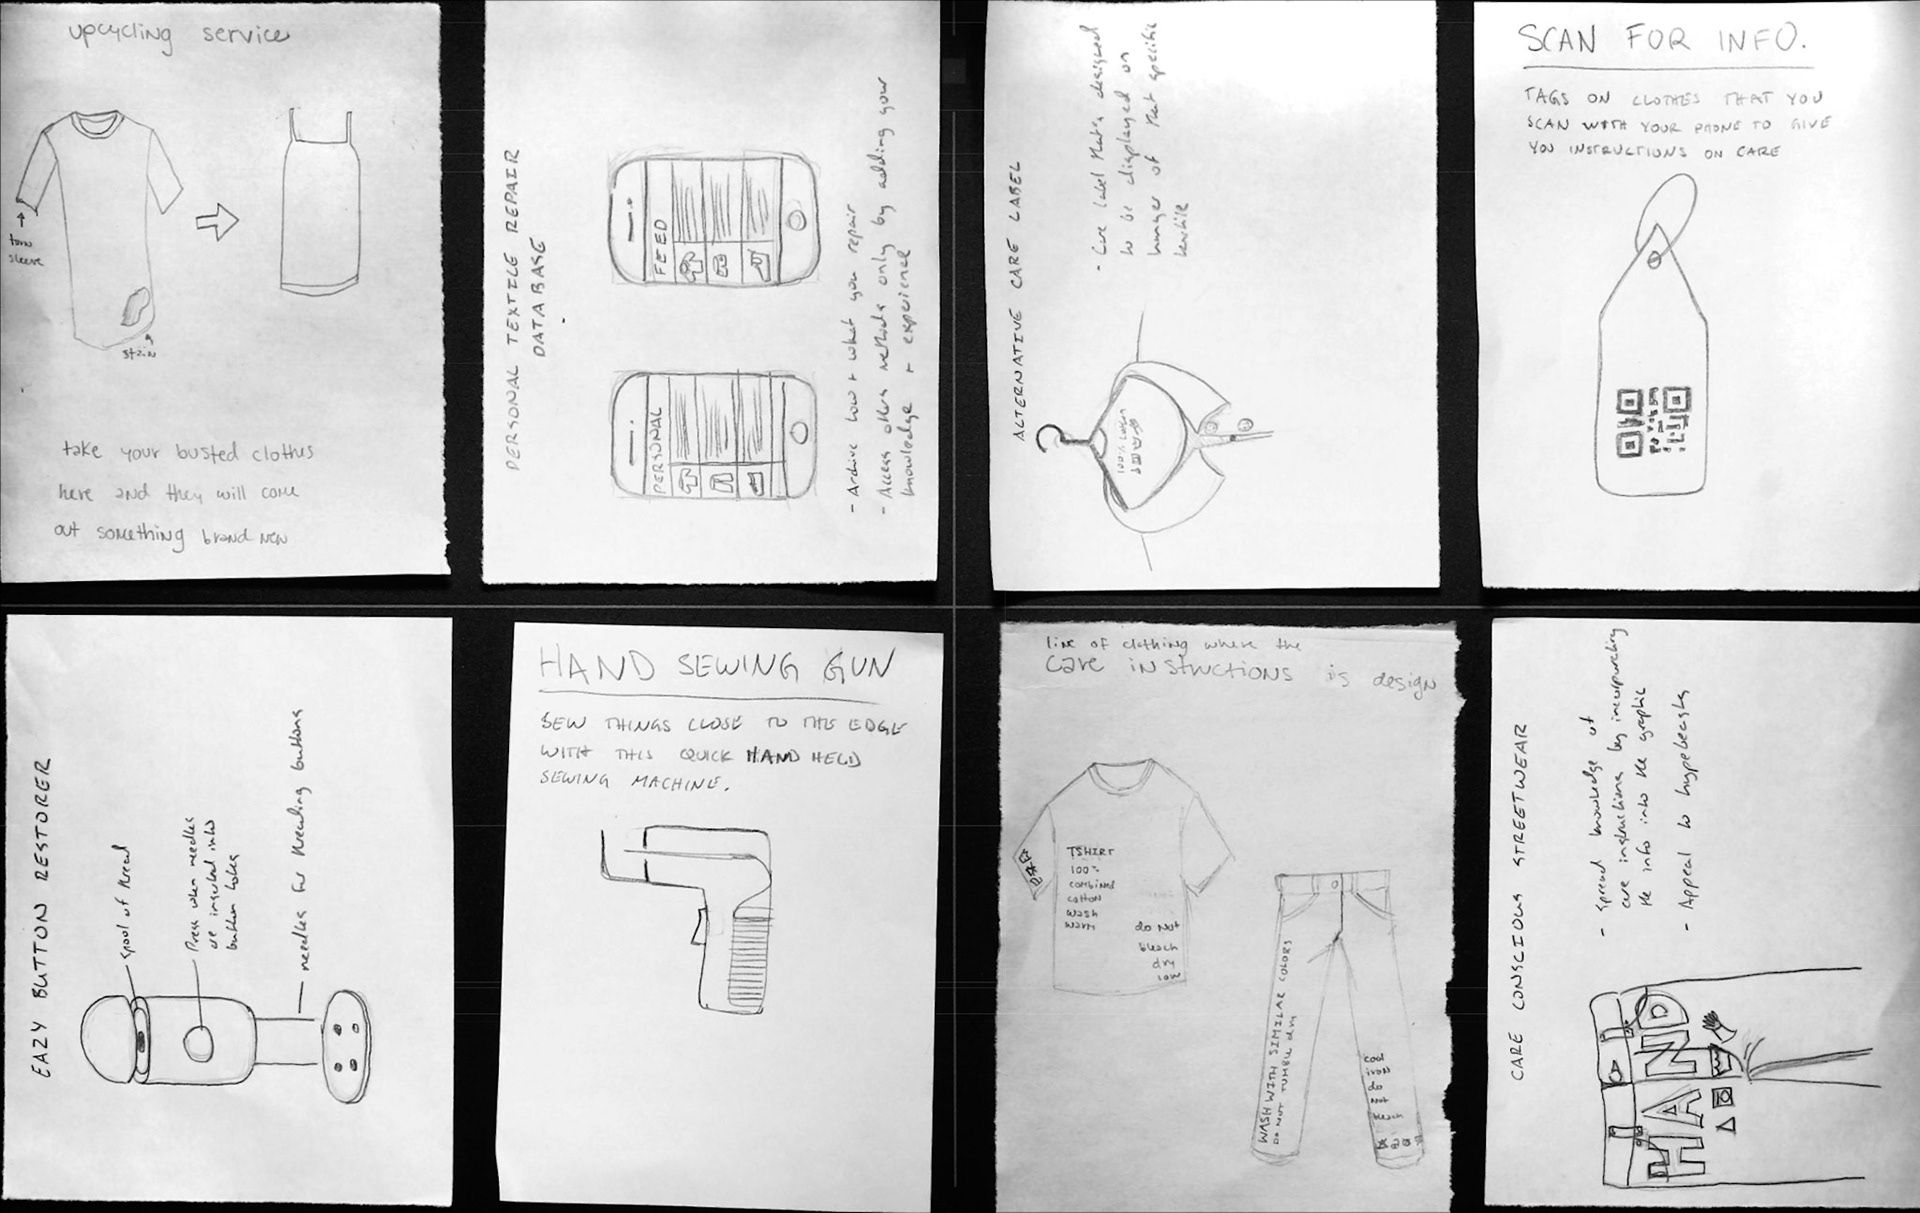 upcycling service
torn
sleeve
stain
take your busted clothes
here and they will come
out something brand new
PERSONAL TEXTILE REPAIR
DATABASE
FEED
PERSONAL
- Archive how + what you repair
- Access others methods only by adding your
knowledge + experience
ALTERNATIVE CARE LABEL
- Care label that's designed
to be displayed on
hanger of that specific
textile
100%
SCAN FOR INFO.
TAGS ON CLOTHES THAT YOU
SCAN WITH YOUR PHONE TO GIVE
YOU INSTRUCTIONS ON CARE
EAZY BUTTON RESTORER
spool of thread
Press when needles
are inserted into
button holes
needles for threading buttons
HAND SEWING GUN
SEW THINGS CLOSE TO THE EDGE
WITH THIS QUICK HAND HELD
SEWING MACHINE.
line of clothing where the
care instructions is design
TSHIRT
100%
combined
cotton
wash
warm
do Not
bleach
dry
low
WASH WITH SIMILAR COLORS
DO NOT TUMBLE dry
cool
iron
do
not
bleach
CARE CONSCIOUS STREETWEAR
- Spread knowledge of
care instructions by incorporating
the info into the graphic
- Appeal to hypebeasts
HAND